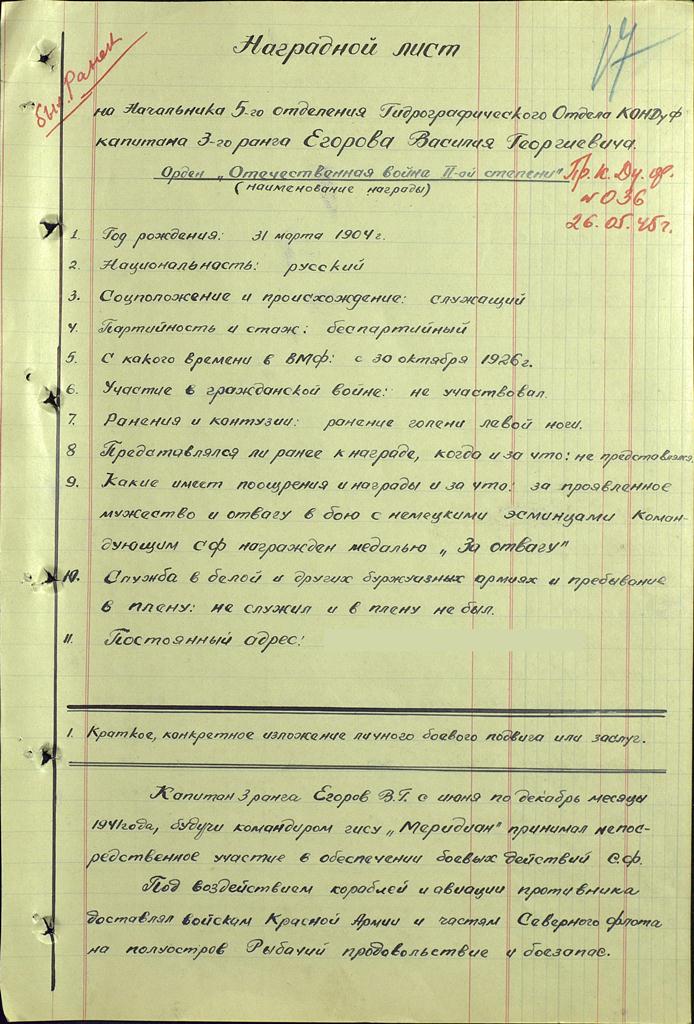 17
был ранен
Наградной лист
на Начальника 5-го отделения Гидрографического Отдела КОНДуф
капитана 3-го ранга Егорова Василия Георгиевича.
Орден „Отечественная война II-ой степени"
(наименование награды)
Пр. к. Ду. ф.
№ 036
26.05.45г.
1. Год рождения: 31 марта 1904 г.
2. Национальность: русский
3. Соцположение и происхождение: служащий
4. Партийность и стаж: беспартийный
5. С какого времени в ВМФ: с 30 октября 1926 г.
6. Участие в гражданской войне: не участвовал.
7. Ранения и контузии: ранение голени левой ноги.
8 Представлялся ли ранее к награде, когда и за что: не представлялся.
9. Какие имеет поощрения и награды и за что: за проявленное
мужество и отвагу в бою с немецкими эсминцами Коман-
дующим СФ награжден медалью „За отвагу"
10. Служба в белой и других буржуазных армиях и пребывание
в плену: не служил и в плену не был.
11. Постоянный адрес:
1. Краткое, конкретное изложение личного боевого подвига или заслуг.
Капитан 3 ранга Егоров В.Г. с июня по декабрь месяцы
1941 года, будучи командиром гису „Меридиан" принимал непос-
редственное участие в обеспечении боевых действий СФ.
Под воздействием кораблей и авиации противника
доставлял войскам Красной Армии и частям Северного флота
на полуостров Рыбачий продовольствие и боезапас.